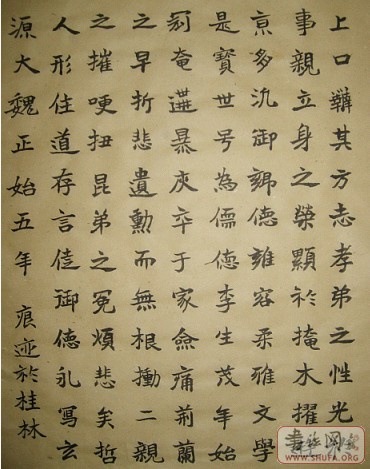 上口其方志孝弟之性光
事親立身之榮顯於掩木擢
京多汎御德雍容柔雅文學
是寶世号為儒德李生茂年始
剋奄遘暴灰卒于家僉痛荊蘭
之早折悲遺勳而無根慟二親
之摧哽扭昆弟之冤煩悲矣哲
人形住道存言往御德永寫玄
源大魏正始五年 痕迹於桂林
WWW.SHUFA.ORG